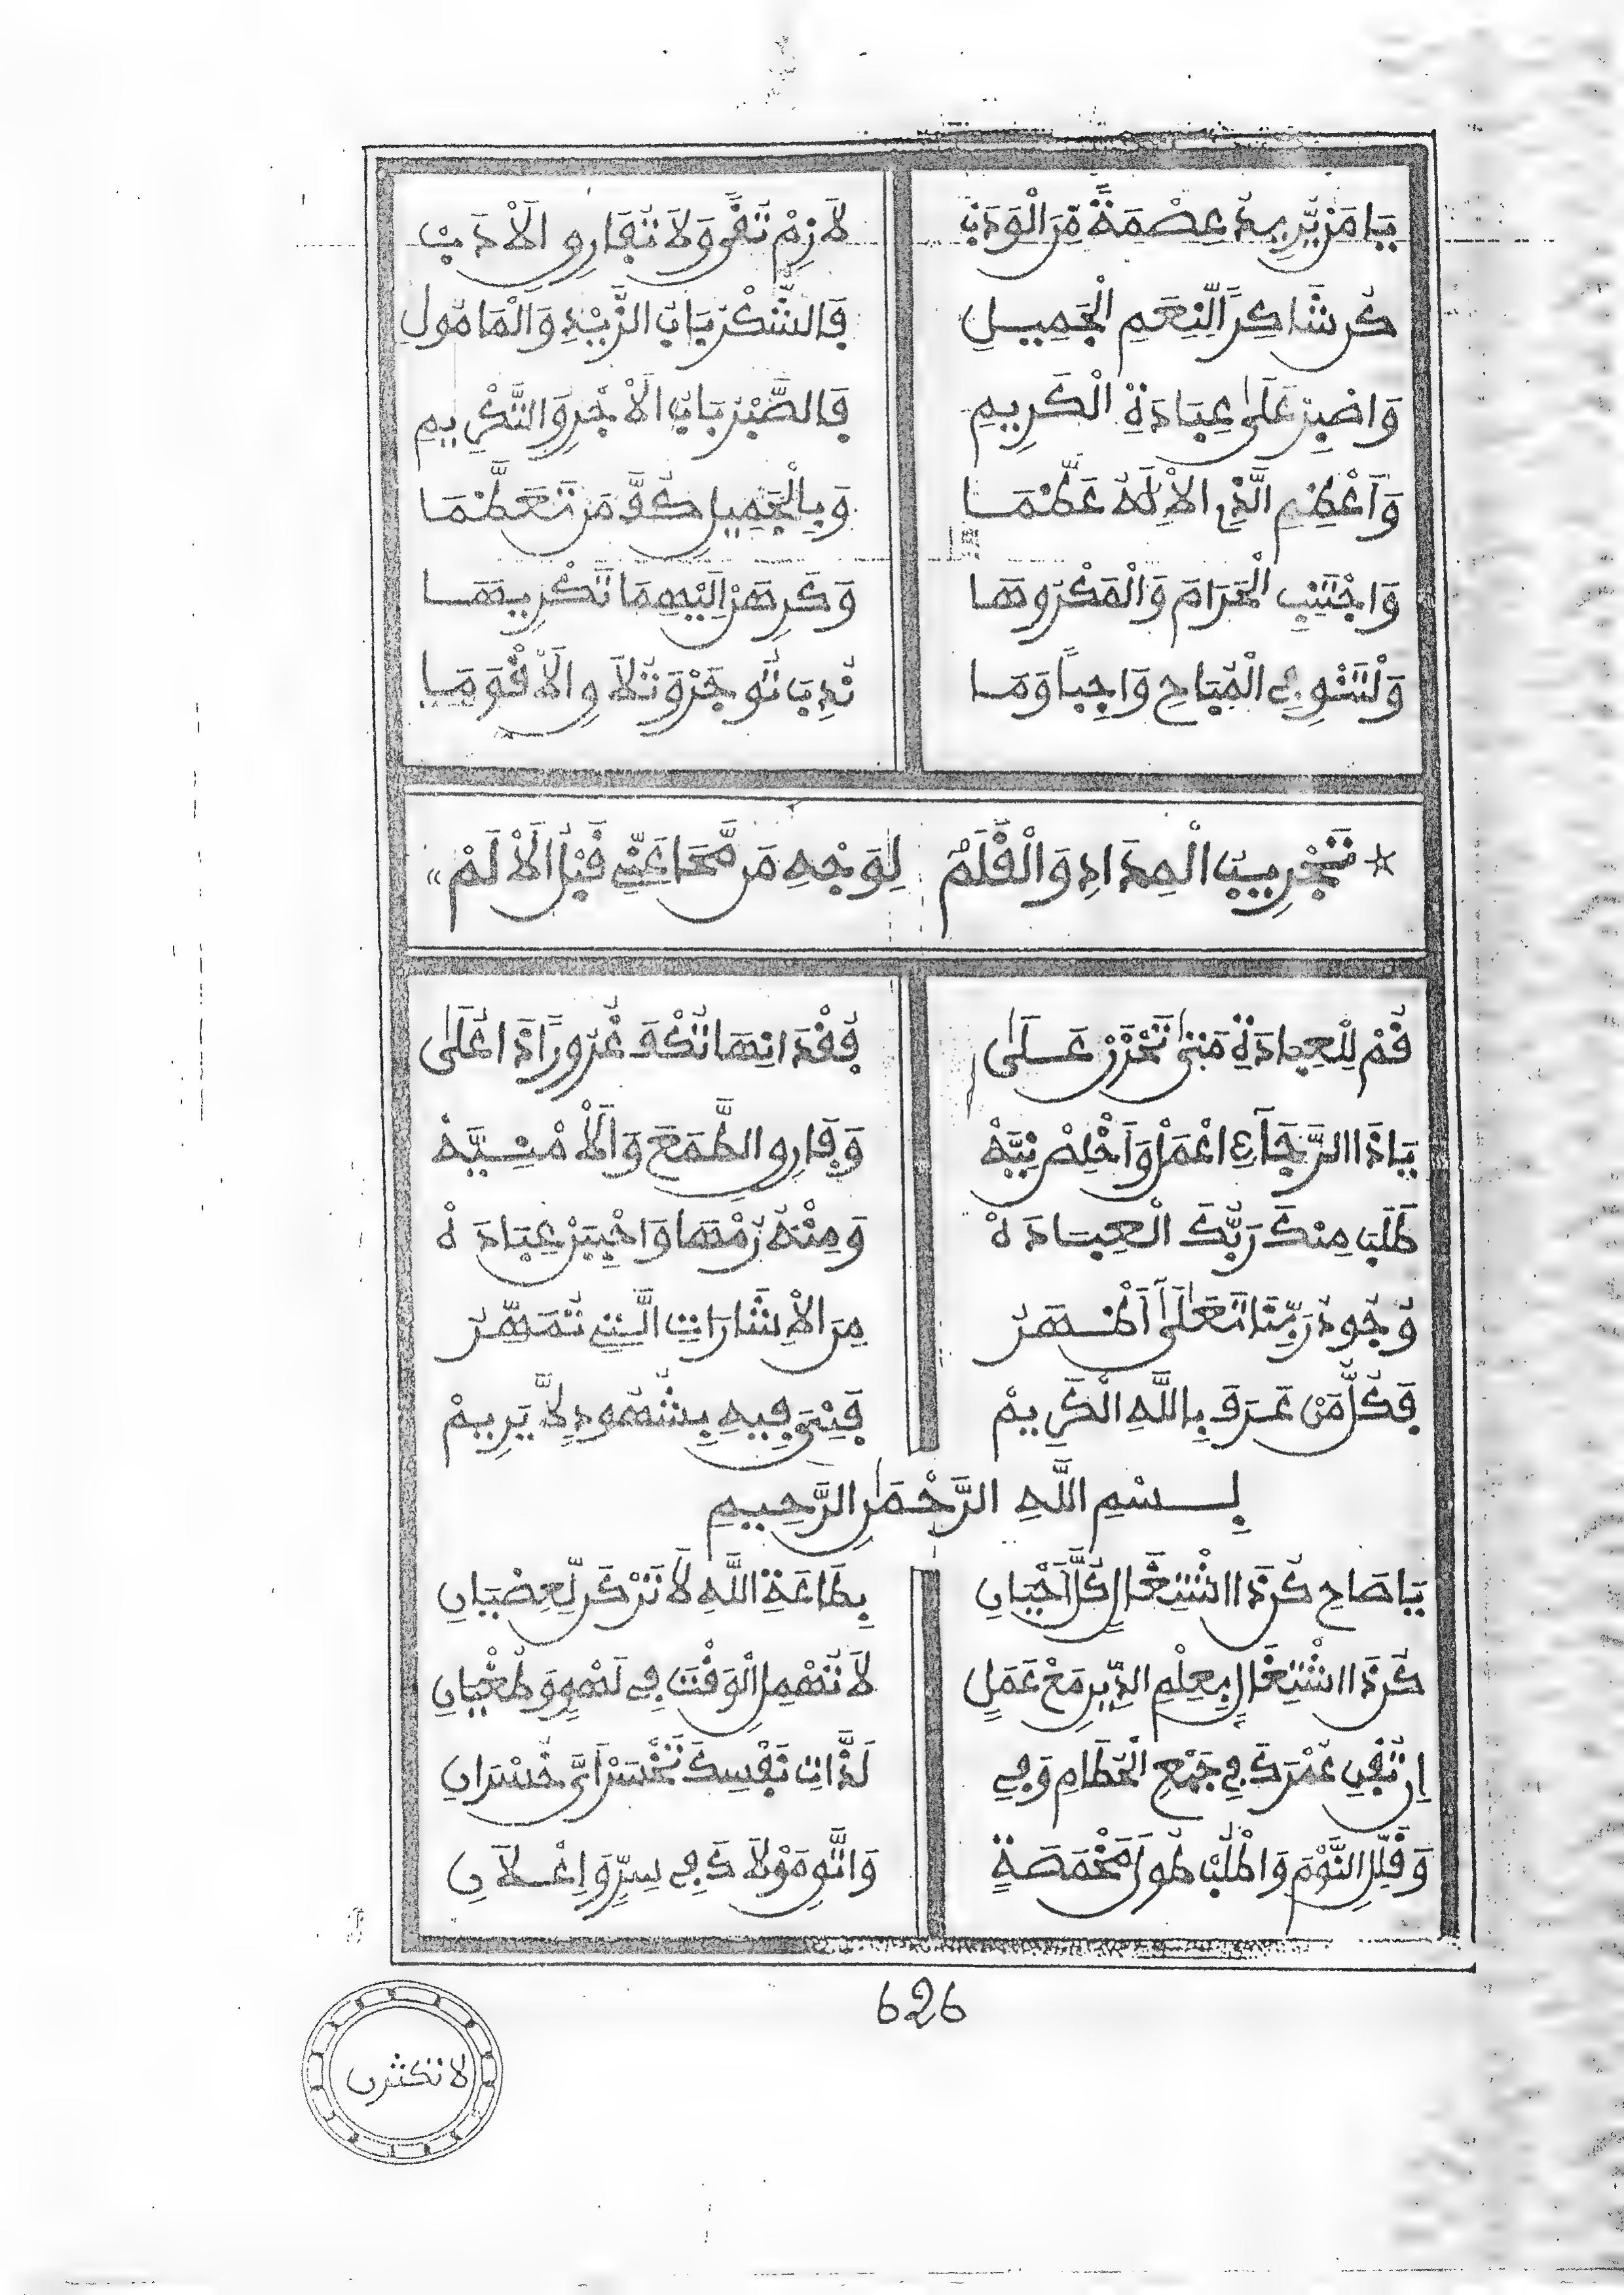 يَا مَن يُّرِيدُ عِصْمَةً مِّنَ الْوَدَبْ لَازِمْ تُقًى وَلَا تُفَارِقِ الْأَدَبْ
كُن شَاكِراً لِّنِعَمِ الْجَمِيلِ فَالشُّكْرُ بَابُ الزَّيْدِ وَالْمَامُولِ
وَاصْبِرْ عَلَى عِبَادَةِ الْكَرِيمِ فَالصَّبْرُ بَابُ الْأَجْرِ وَالتَّكْرِيمِ
وَأَعْظِمِ الَّذِي الْإِلَهُ عَظَّمَا وَبِالْجَمِيلِ كُفَّ مَن تَعَظَّمَا
وَاجْتَنِبِ الْحَرَامَ وَالْمَكْرُوهَا وَكَرِّهَنْ إِلَيْهِمَا تَكْرِيهَا
وَلْتَنْوِ فِي الْمُبَاحِ وَاجِباً وَمَا نُدِبَ تُوجَرْ وَتُلَاقِ الْأَقْوَمَا
☆ تَجْرِيبُ الْمِدَادِ وَالْقَلَمْ لِوَجْهِ مَن مَّحَا عَنِّي قَبْلُ الْأَلَمْ »
قُمْ لِلْعِبَادَةِ مَتَى تَحْزَرْ عَلَى فَقْدَانِهَا تُكْفَ غُرُوراً ذَا عَلَى
يَا ذَا الرَّجَاءِ اعْمَلْ وَأَخْلِصْ نِيَّهْ وَفَارِقِ الطَّمَعَ وَالْأُمْنِيَّهْ
طَلَبَ مِنْكَ رَبُّكَ الْعِبَادَهْ وَمِنْهُ رُمْهَا وَاحْيِيَنْ عِبَادَهْ
وُجُودُ رَبِّنَا تَعَالَى أَظْهَرُ مِنَ الْإِشَارَاتِ الَّتِي تُمَهَّرُ
فَكُلُّ مَنْ عَرَفَ بِاللَّهِ الْكَرِيمْ فَنِيَ فِيهِ بِشُهُودٍ لَّا يَرِيمْ
بِسْمِ اللَّهِ الرَّحْمَنِ الرَّحِيمِ
يَا صَاحِ كُن ذَا اشْتِغَالٍ كُلَّ أَحْيَانِ بِطَاعَةِ اللَّهِ لَا تَرْكَن لِّعِصْيَانِ
كُن ذَا اشْتِغَالٍ بِعِلْمِ الدِّينِ مَعْ عَمَلٍ لَا تُهْمِلِ الْوَقْتَ فِي لَهْوٍ وَطُغْيَانِ
إِن تُفْنِ عُمْرَكَ فِي جَمْعِ الْحُطَامِ وَفِي لَذَّاتِ نَفْسِكَ تَخْسَرْ أَيَّ خُسْرَانِ
وَقَلِّلِ النَّوْمَ وَاطْلُبْ طُولَ مَخْمَصَةٍ وَاتَّقِ مَوْلَاكَ فِي سِرٍّ وَإِعْلَانِ
626
لا تكثرن